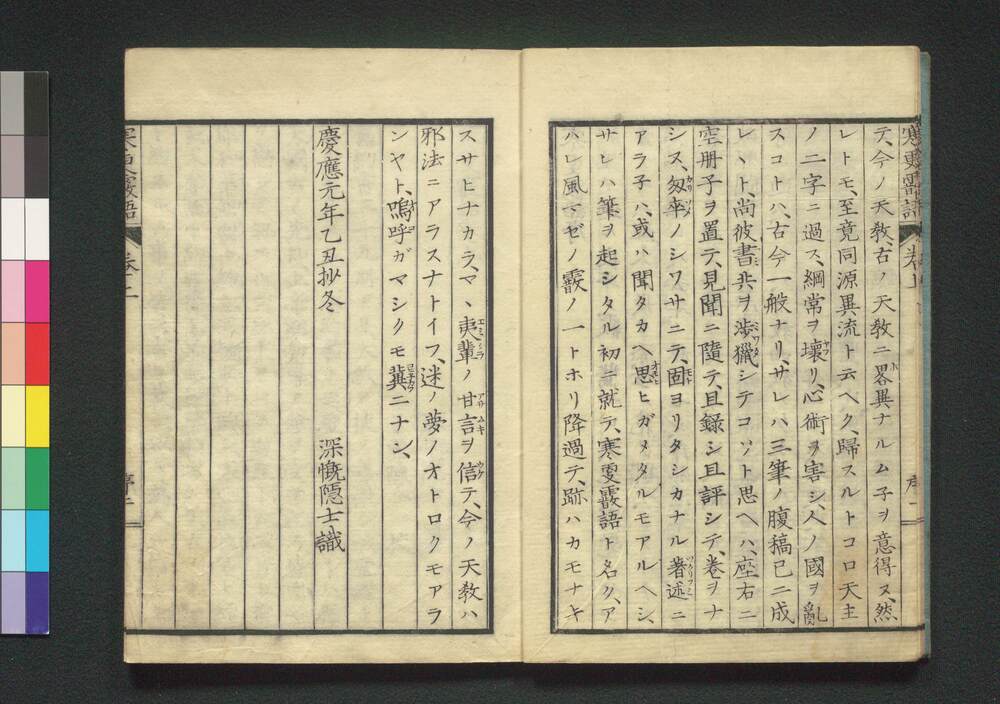 テ、今ノ天敎、古ノ天敎ニ畧異ナルム子ヲ意得ヌ、然
レトモ、至竟同源異流ト云ヘク、歸スルトコロ天主
ノ二字ニ過ス、綱常ヲ壞リ、心術ヲ害シ、人ノ國ヲ亂
スコトハ、古今一般ナリ、サレハ三筆ノ腹稿已ニ成
レヽト、尚彼書共ヲ渉獵シテコソト思ヘハ、座右ニ
空册子ヲ置テ、見聞ニ隨テ、且錄シ且評シテ、卷ヲナ
シヌ、匆率ノシワサニテ、固ヨリタシカナル著述ニ
アラ子ハ、或ハ聞タカヘ思ヒガメタルモアルヘシ、
サレハ筆ヲ起シタル初ニ就テ、寒更霰語ト名ク、ア
ハレ風マゼノ霰ノ一トホリ降過テ、跡ハカモナキ
スサヒナカラ、マヽ夷輩ノ甘言ヲ信テ、今ノ天敎ハ
邪法ニアラスナトイフ、迷ノ夢ノオトロクモアラ
ンヤト、嗚呼ガマシクモ冀ニナン、
慶應元年乙丑抄冬
深慨隠士識